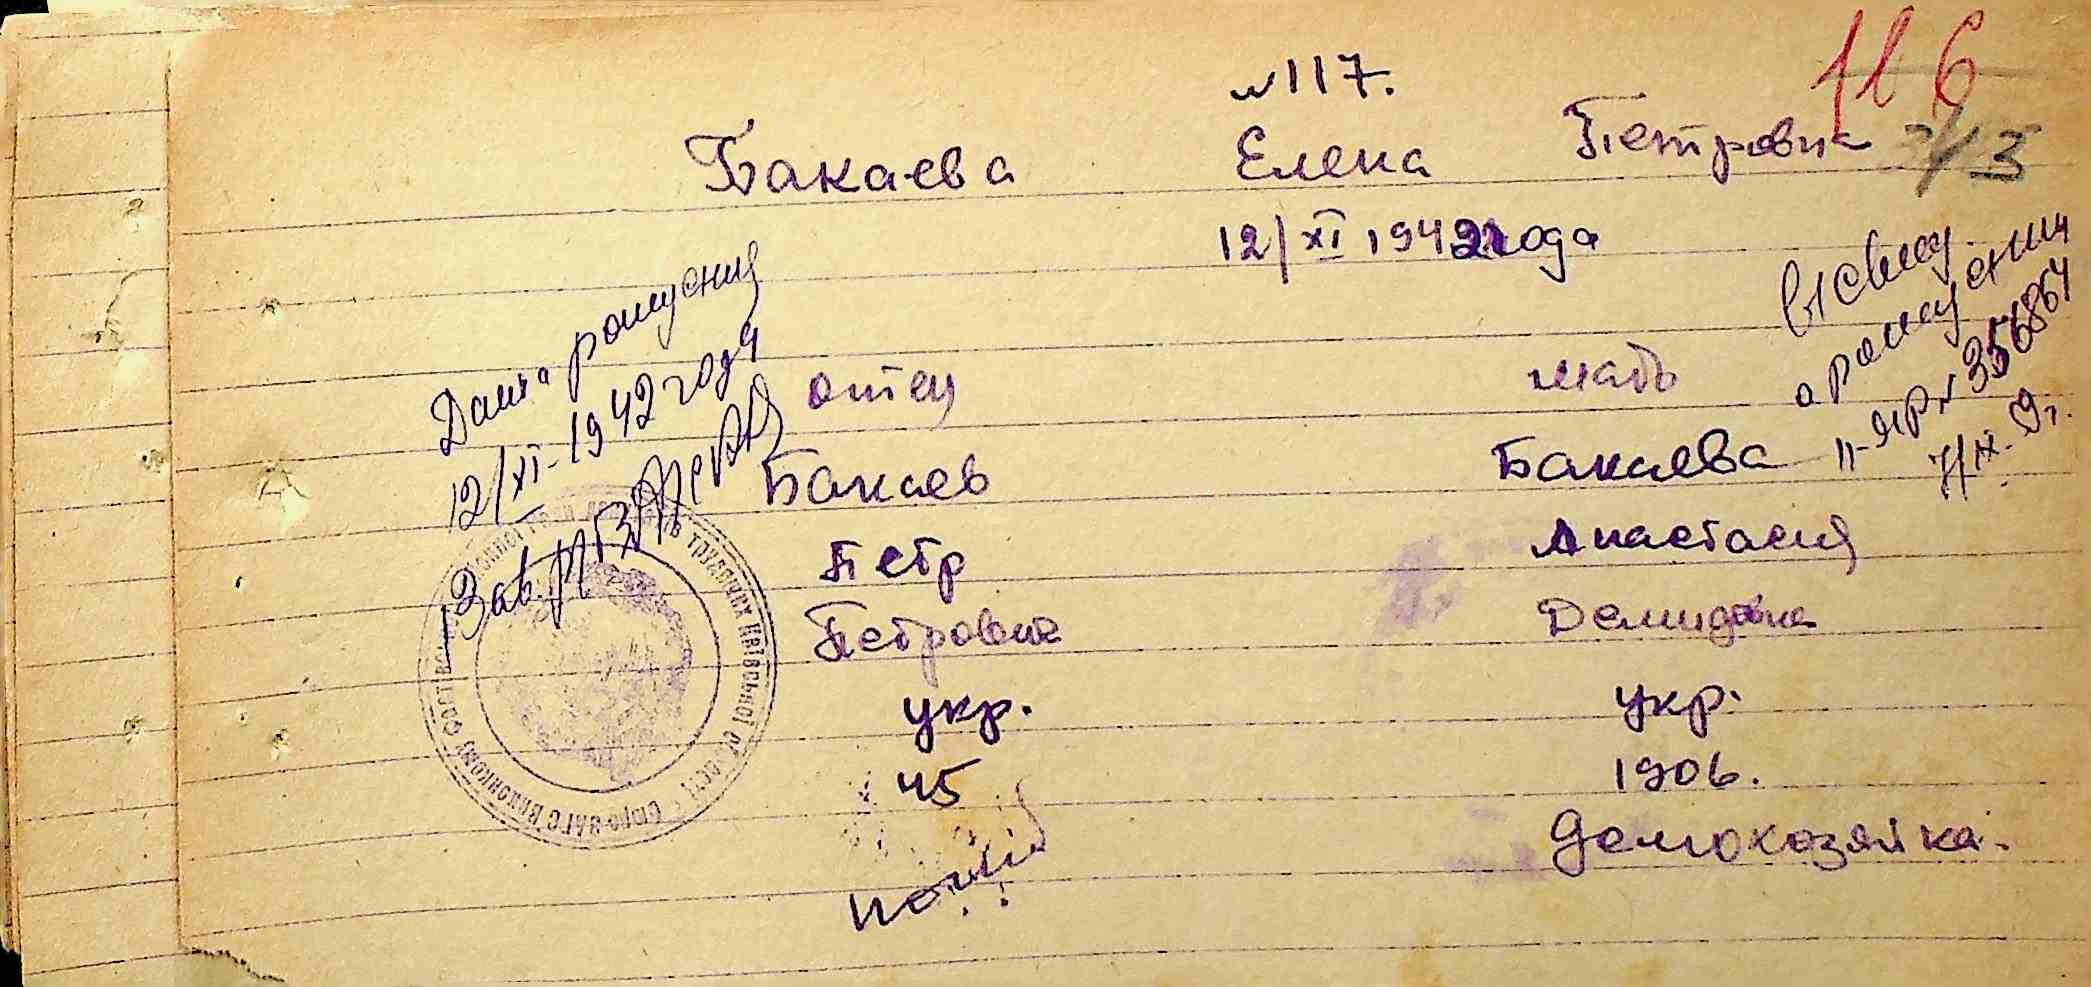 116
№117.
Бакаева Елена Петровна
12/XI 1942 года
Дата рождения
12/XI-1942 года
Зав.
отец
Бакаев
Петр
Петрович
укр.
45
мать
Бакаева
Анастасия
Демидовна
укр.
1906.
домохозяйка.
о рождении
II-ЯР № 356864